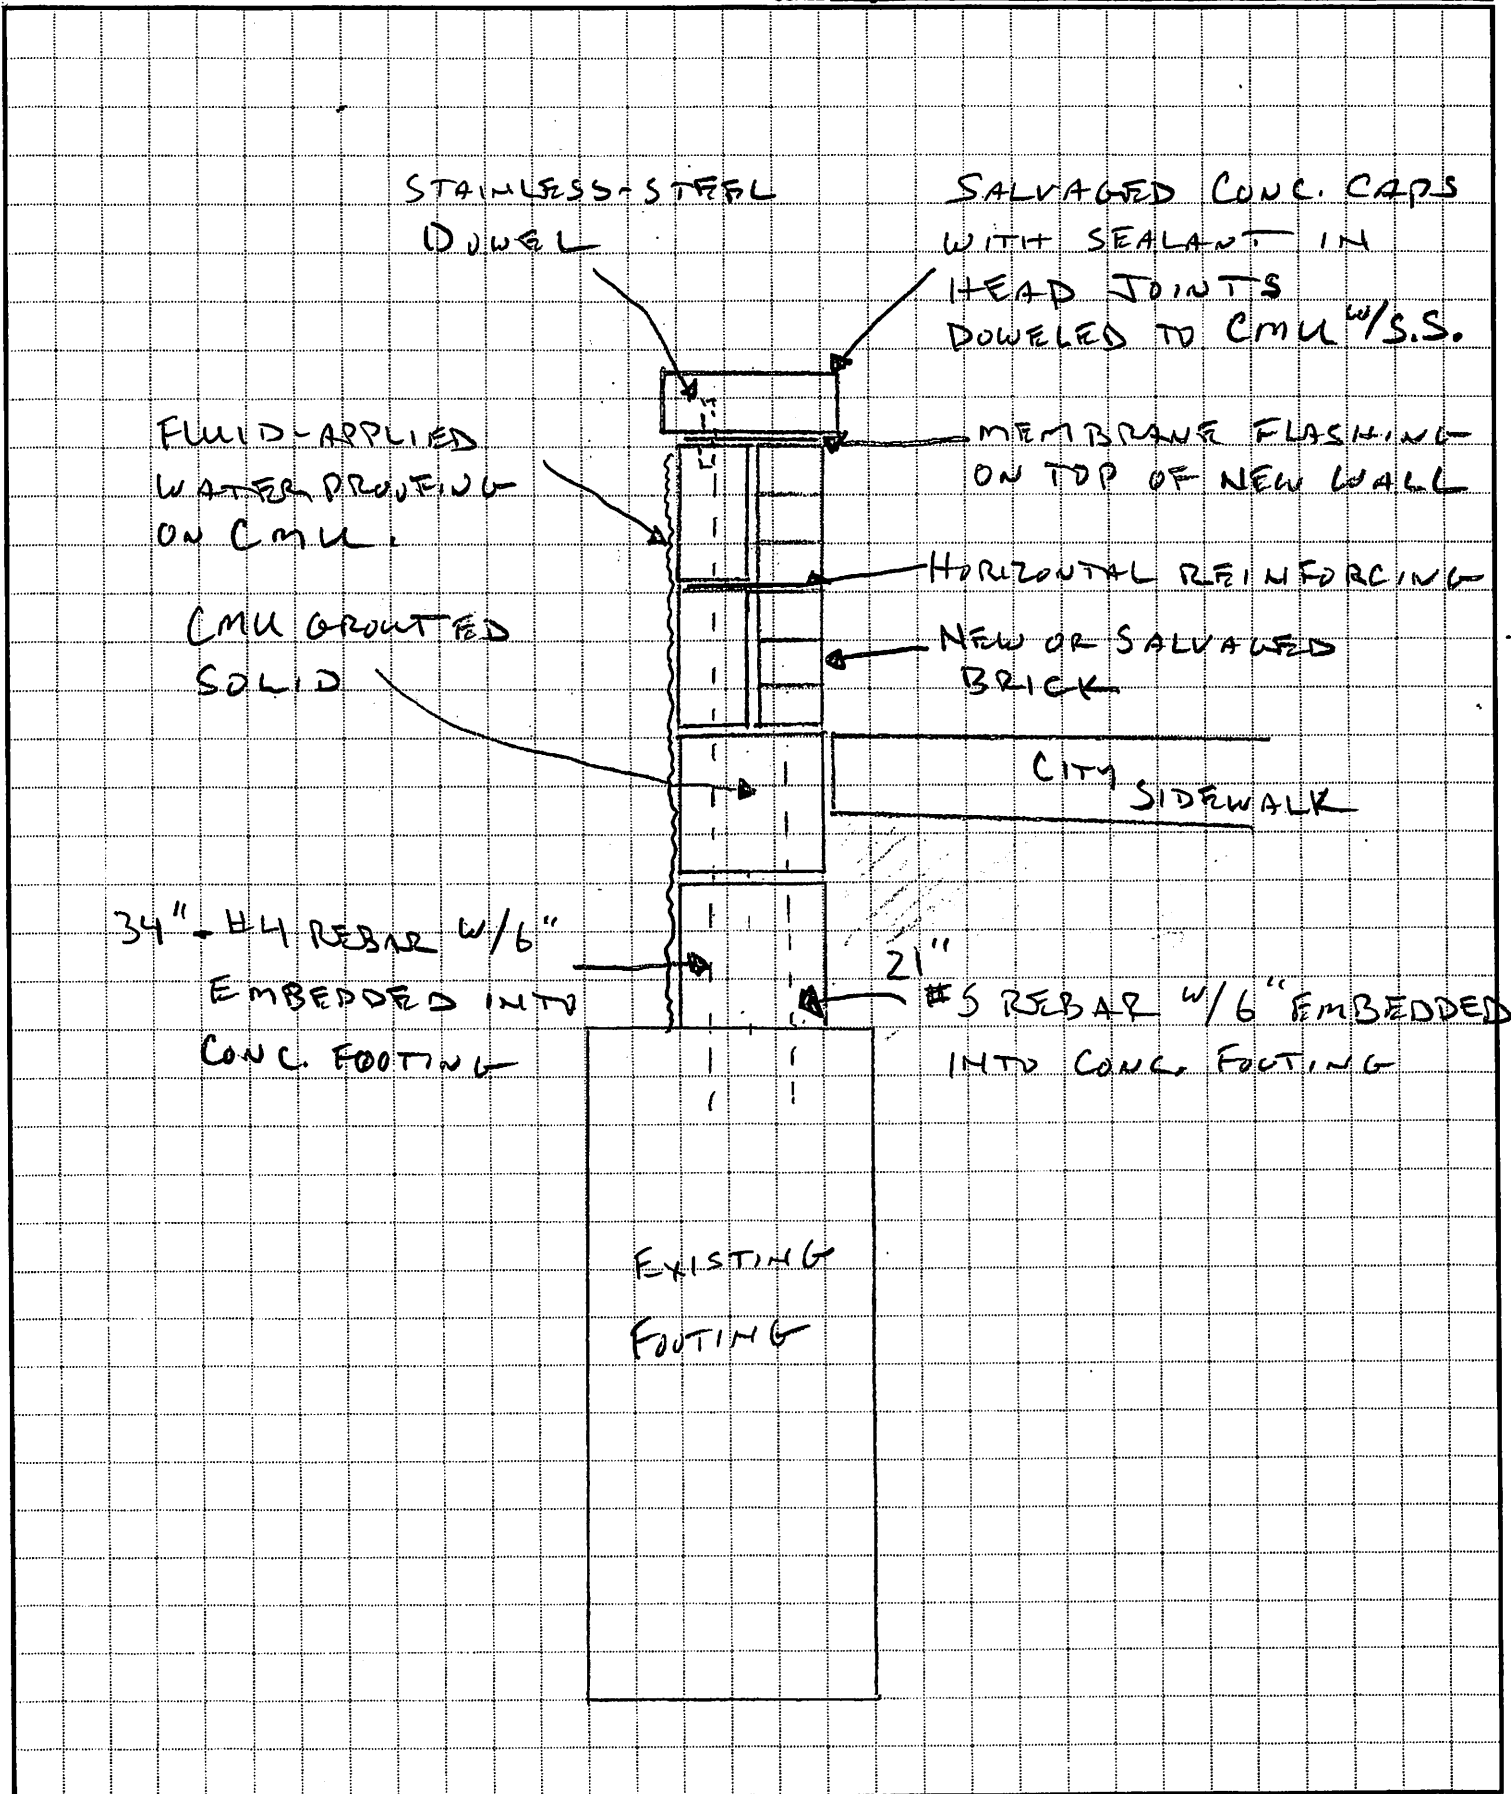 STAINLESS-STEEL
DOWEL
SALVAGED CONC. CAPS
WITH SEALANT IN
HEAD JOINTS
DOWELED TO CMU W/S.S.
FLUID-APPLIED
WATERPROOFING
ON CMU.
MEMBRANE FLASHING
ON TOP OF NEW WALL
HORIZONTAL REINFORCING
CMU GROUTED
SOLID
NEW OR SALVAGED
BRICK
CITY
SIDEWALK
34" - #4 REBAR W/6"
EMBEDDED INTO
CONC. FOOTING
21"
#5 REBAR W/6" EMBEDDED
INTO CONC. FOOTING
EXISTING
FOOTING